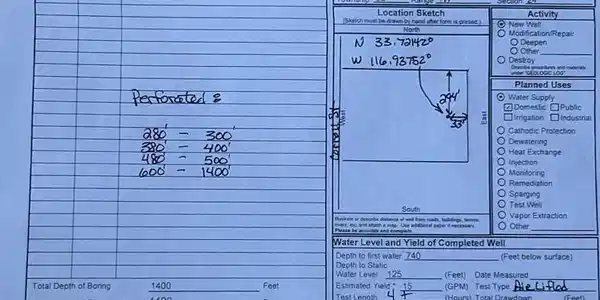 Location Sketch
(Sketch must be drawn by hand after form is printed.)
North
N 33.72142°
W 116.93752°
294'
33'
West
East
South
Illustrate or describe distance of well from roads, buildings, fences,
rivers, etc. and attach a map. Use additional paper if necessary.
Please be accurate and complete.
Activity
New Well
Modification/Repair
Deepen
Other
Destroy
Describe procedures and materials
under "GEOLOGIC LOG"
Planned Uses
Water Supply
Domestic Public
Irrigation Industrial
Cathodic Protection
Dewatering
Heat Exchange
Injection
Monitoring
Remediation
Sparging
Test Well
Vapor Extraction
Other
Perforated :
280' - 300'
380' - 400'
480' - 500'
600' - 1400'
Water Level and Yield of Completed Well
Depth to first water 740 (Feet below surface)
Depth to Static
Water Level 125 (Feet) Date Measured
Estimated Yield * 15 (GPM) Test Type Air Lifted
Test Length 4 + (Hours) Total Drawdown (Feet)
Total Depth of Boring 1400 Feet